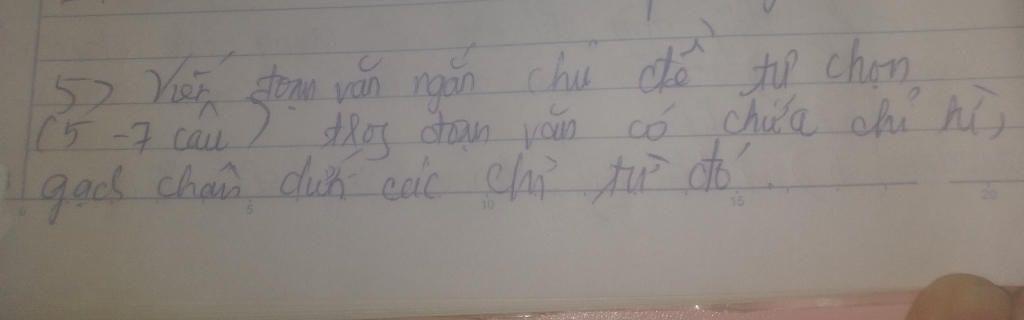 5> Viết đoạn văn ngắn chủ đề tự chọn
(5 - 7 câu) trog đoạn văn có chứa chỉ từ,
gạch chân dưới các chỉ từ đó.
5 10 15 20